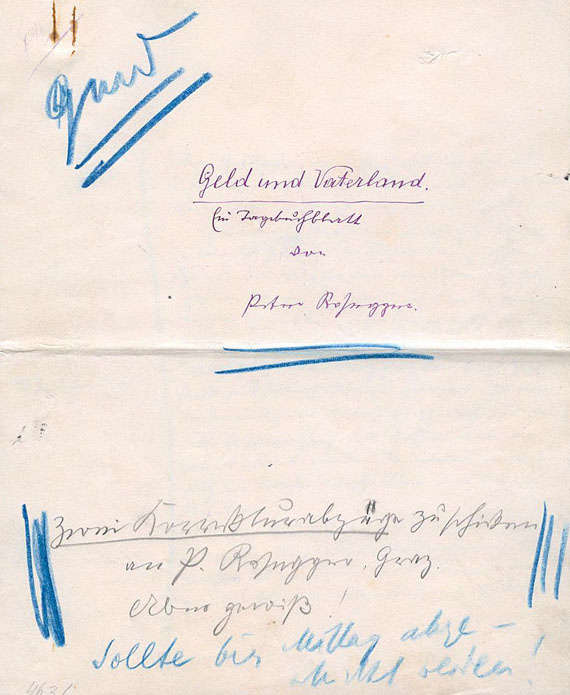 Geld und Vaterland.
Ein Tagebuchblatt
von
Peter Rosegger.
Zwei Korrekturabzüge zu schicken
an P. Rosegger, Graz.
Aber gewiß!
Sollte bis Mittag abge-
schickt werden!